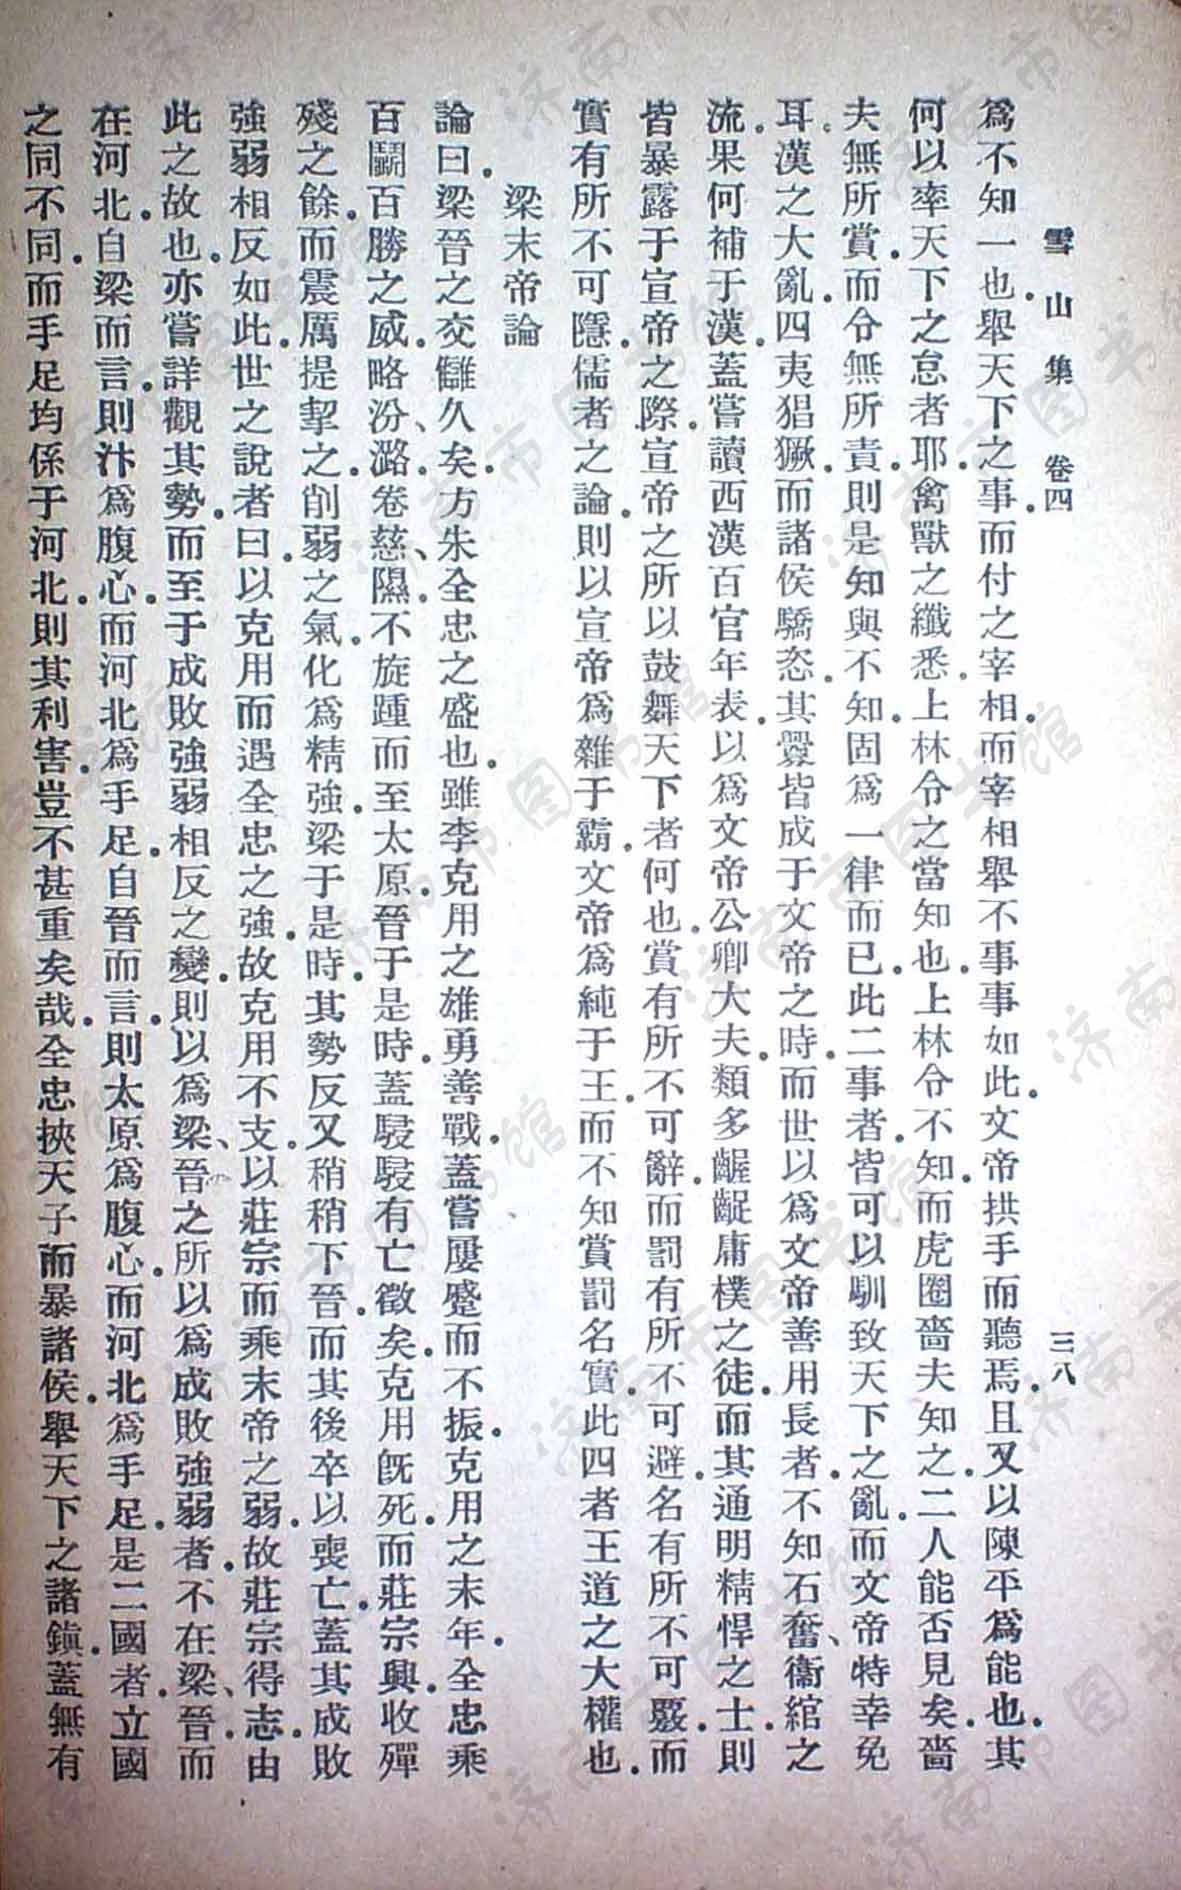 雪山集 卷四 三八
爲不知一也.舉天下之事.而付之宰相.而宰相舉不事事如此.文帝拱手而聽焉.且又以陳平爲能也.其
何以率天下之怠者耶.禽獸之纖悉.上林令之當知也.上林令不知.而虎圈嗇夫知之.二人能否見矣.嗇
夫無所賞.而令無所責.則是知與不知.固爲一律而已.此二事者.皆可以馴致天下之亂.而文帝特幸免
耳.漢之大亂.四夷猖獗.而諸侯驕恣.其釁皆成于文帝之時.而世以爲文帝善用長者.不知石奮、衞綰之
流.果何補于漢.蓋嘗讀西漢百官年表.以爲文帝公卿大夫.類多齷齪庸樸之徒.而其通明精悍之士.則
皆暴露于宣帝之際.宣帝之所以鼓舞天下者何也.賞有所不可辭.而罰有所不可避.名有所不可覈.而
實有所不可隱.儒者之論.則以宣帝爲雜于霸.文帝爲純于王.而不知賞罰名實.此四者王道之大權也.
梁末帝論
論曰.梁晉之交讎久矣.方朱全忠之盛也.雖李克用之雄勇善戰.蓋嘗屢蹙而不振.克用之末年.全忠乘
百鬭百勝之威.略汾、潞.卷慈、隰.不旋踵而至太原.晉于是時.蓋駸駸有亡徵矣.克用旣死.而莊宗興.收殫
殘之餘.而震厲提挈之.削弱之氣.化爲精強.梁于是時.其勢反又稍稍下晉.而其後卒以喪亡.蓋其成敗
強弱相反如此.世之說者曰.以克用而遇全忠之強.故克用不支.以莊宗而乘末帝之弱.故莊宗得志.由
此之故也.亦嘗詳觀其勢.而至于成敗強弱相反之變.則以爲梁、晉之所以爲成敗強弱者.不在梁、晉.而
在河北.自梁而言.則汴爲腹心.而河北爲手足.自晉而言.則太原爲腹心.而河北爲手足.是二國者.立國
之同不同.而手足均係于河北.則其利害.豈不甚重矣哉.全忠挾天子而暴諸侯.舉天下之諸鎭.蓋無有